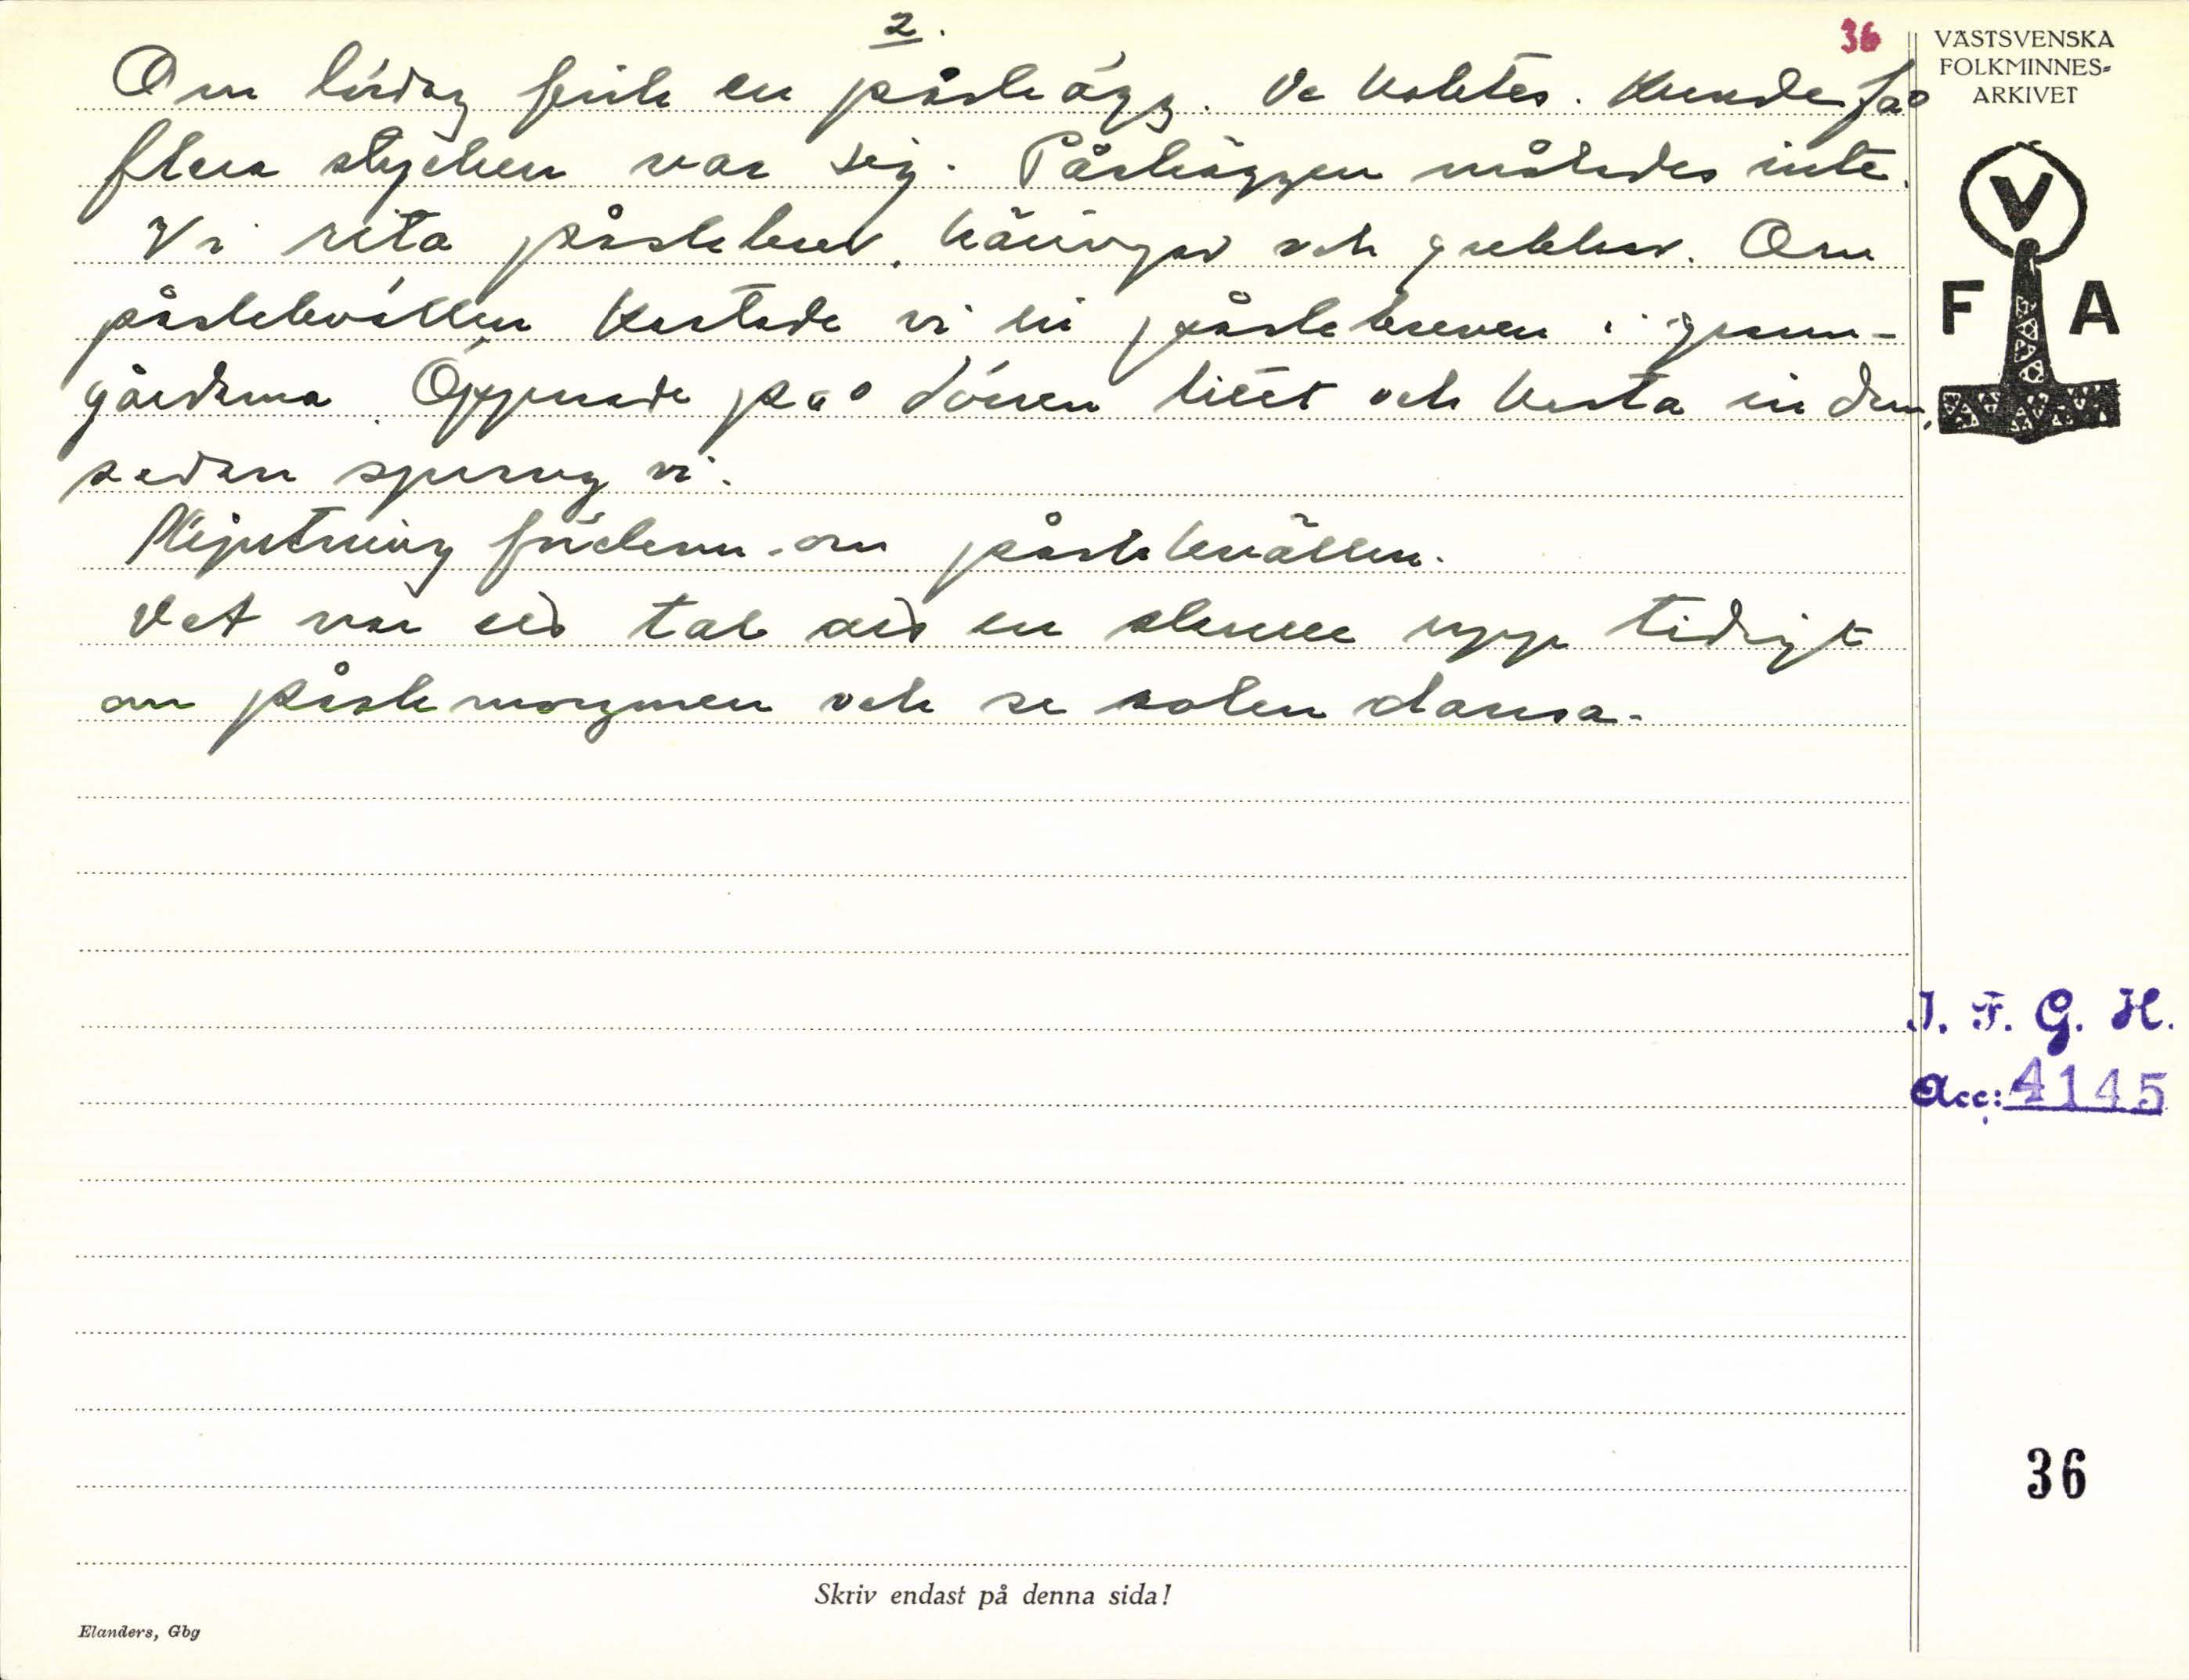 2.
36
Om lördag fick en påskägg. De koktes. Kunde få
flera stycken var sig. Påskäggen målades inte.
Vi rita påskbrev, käringar och gubbar. Om
påskkvällen kastade vi in påskbreven i grann-
gårdarna. Öppnade på dörren litet och kasta in dem,
sedan sprang vi.
Skjutning förekom om påskkvällen.
Det var ett tal att en skulle upp tidigt
om påskmorgonen och se solen dansa.
VÄSTSVENSKA
FOLKMINNES-
ARKIVET
V
F A
I. F. G. H.
Acc: 4145
36
Skriv endast på denna sida!
Elanders, Gbg